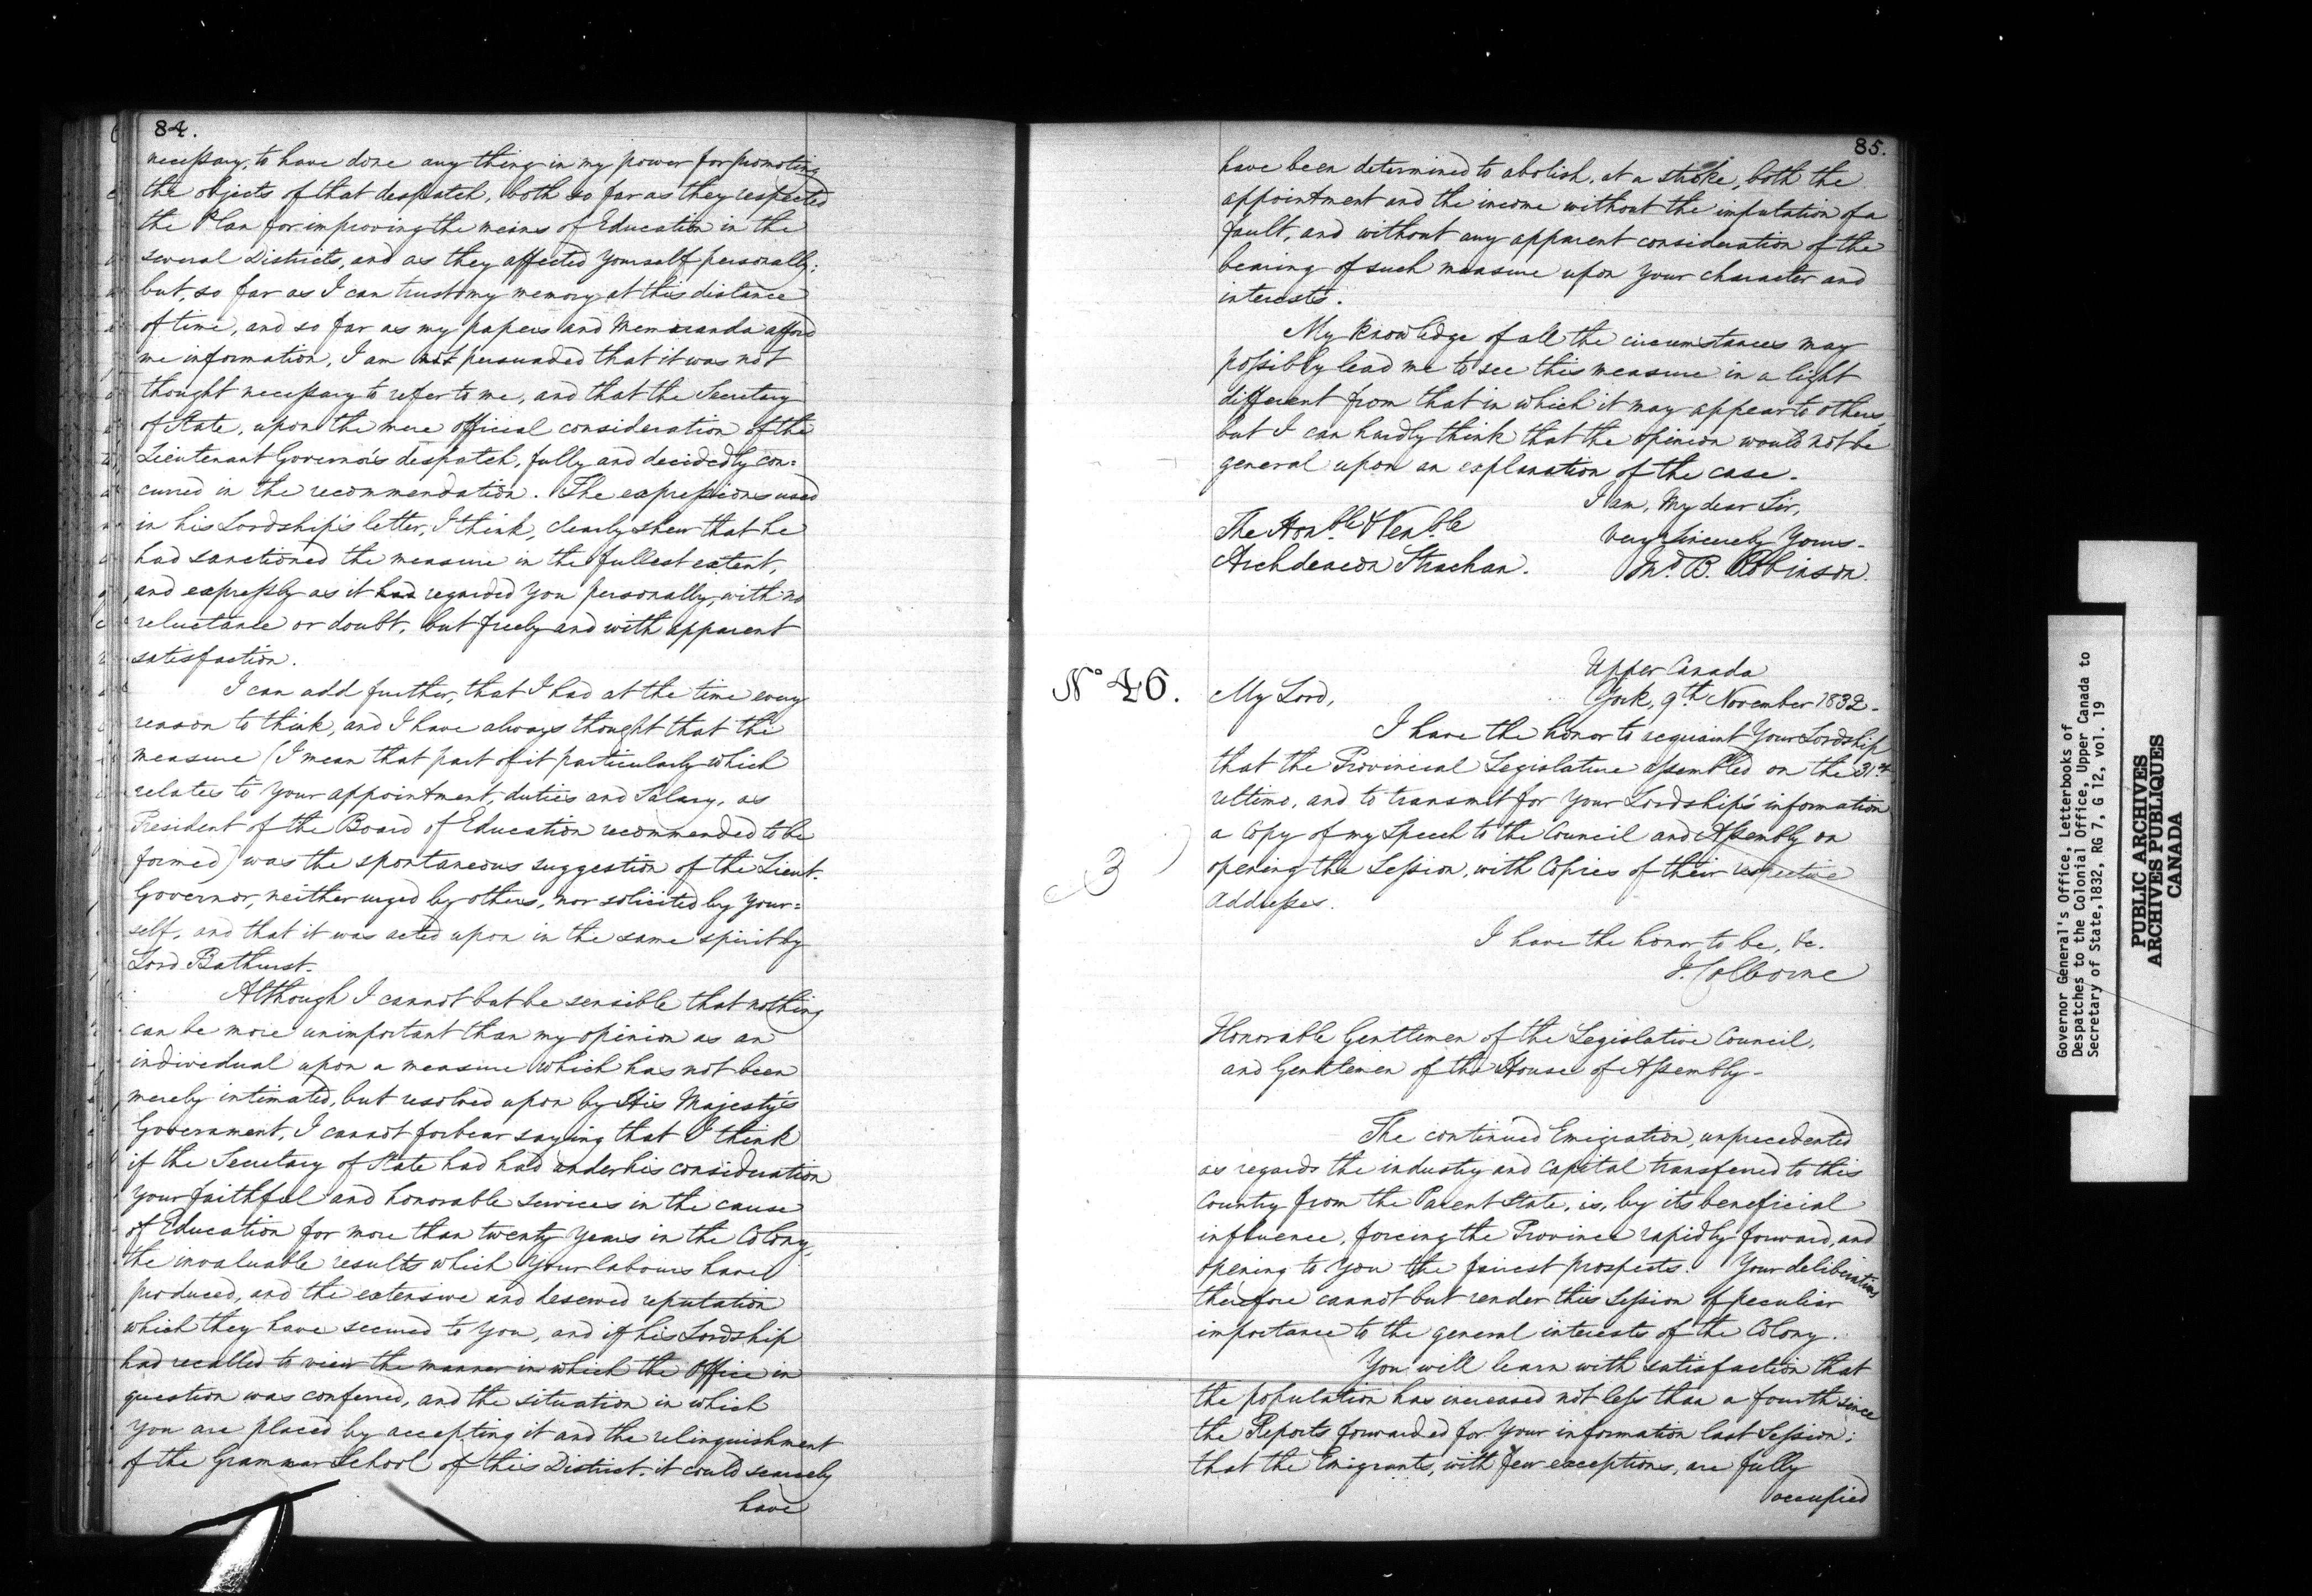 84.
necessary, to have done any thing in my power for promoting
the objects of that despatch, both so far as they respected
the Plan for improving the means of Education in the
several Districts, and as they affected yourself personally;
but, so far as I can trust my memory at this distance
of time, and so far as my papers and Memoranda afford
me information, I am not persuaded that it was not
thought necessary to refer to me, and that the Secretary
of State, upon the mere official consideration of the
Lieutenant Governor's despatch, fully and decidedly con=
curred in the recommendation. The expressions used
in his Lordship's letter, I think, clearly shew that he
had sanctioned the measure in the fullest extent,
and expressly as it had regarded you personally, with no
reluctance or doubt, but freely and with apparent
satisfaction.
I can add further, that I had at the time every
reason to think, and I have always thought that the
measure (I mean that part of it particularly which
relates to your appointment, duties and Salary, as
President of the Board of Education recommended to be
formed) was the spontaneous suggestion of the Lieut.
Governor, neither urged by others, nor solicited by your=
self, and that it was acted upon in the same spirit by
Lord Bathurst.
Although I cannot but be sensible that nothing
can be more unimportant than my opinion as an
individual upon a measure which has not been
merely intimated, but resolved upon by His Majesty's
Government, I cannot forbear saying that I think
if the Secretary of State had had under his consideration
your faithful and honorable services in the cause
of Education for more than twenty years in the Colony,
the invaluable results which your labours have
produced, and the extensive and deserved reputation
which they have secured to you, and if his Lordship
had recalled to view the manner in which the Office in
question was conferred, and the situation in which
you are placed by accepting it and the relinquishment
of the Grammar School of this District, it could scarcely
have
85.
have been determined to abolish, at a stroke, both the
appointment and the income without the imputation of a
fault, and without any apparent consideration of the
bearing of such measure upon your character and
interests.
My knowledge of all the circumstances may
possibly lead me to see this measure in a light
different from that in which it may appear to others,
but I can hardly think that the opinion would not be
general upon an explanation of the case.
I am, My dear Sir,
Very Sincerely Yours.
Jno. B. Robinson.
The Honble. & Venble.
Archdeacon Strachan.
No. 46.
Upper Canada
York, 9th. November 1832.
My Lord,
I have the honor to acquaint Your Lordship
that the Provincial Legislature assembled on the 31st
ultimo, and to transmit for Your Lordship's information
a Copy of my Speech to the Council and Assembly on
opening the Session, with Copies of their respective
Addresses.
3
I have the honor to be, &c.
J. Colborne
Honorable Gentlemen of the Legislative Council,
and Gentlemen of the House of Assembly.
The continued Emigration, unprecedented
as regards the industry and Capital transferred to this
Country from the Parent State, is, by its beneficial
influence, forcing the Province rapidly forward, and
opening to you the fairest prospects. Your deliberations
therefore cannot but render this Session of peculiar
importance to the general interests of the Colony.
You will learn with satisfaction that
the population has increased not less than a fourth since
the Reports forwarded for Your information last Session;
that the Emigrants, with few exceptions, are fully
occupied
Governor General's Office, Letterbooks of
Despatches to the Colonial Office, Upper Canada to
Secretary of State,1832, RG 7, G 12, vol. 19
PUBLIC ARCHIVES
ARCHIVES PUBLIQUES
CANADA